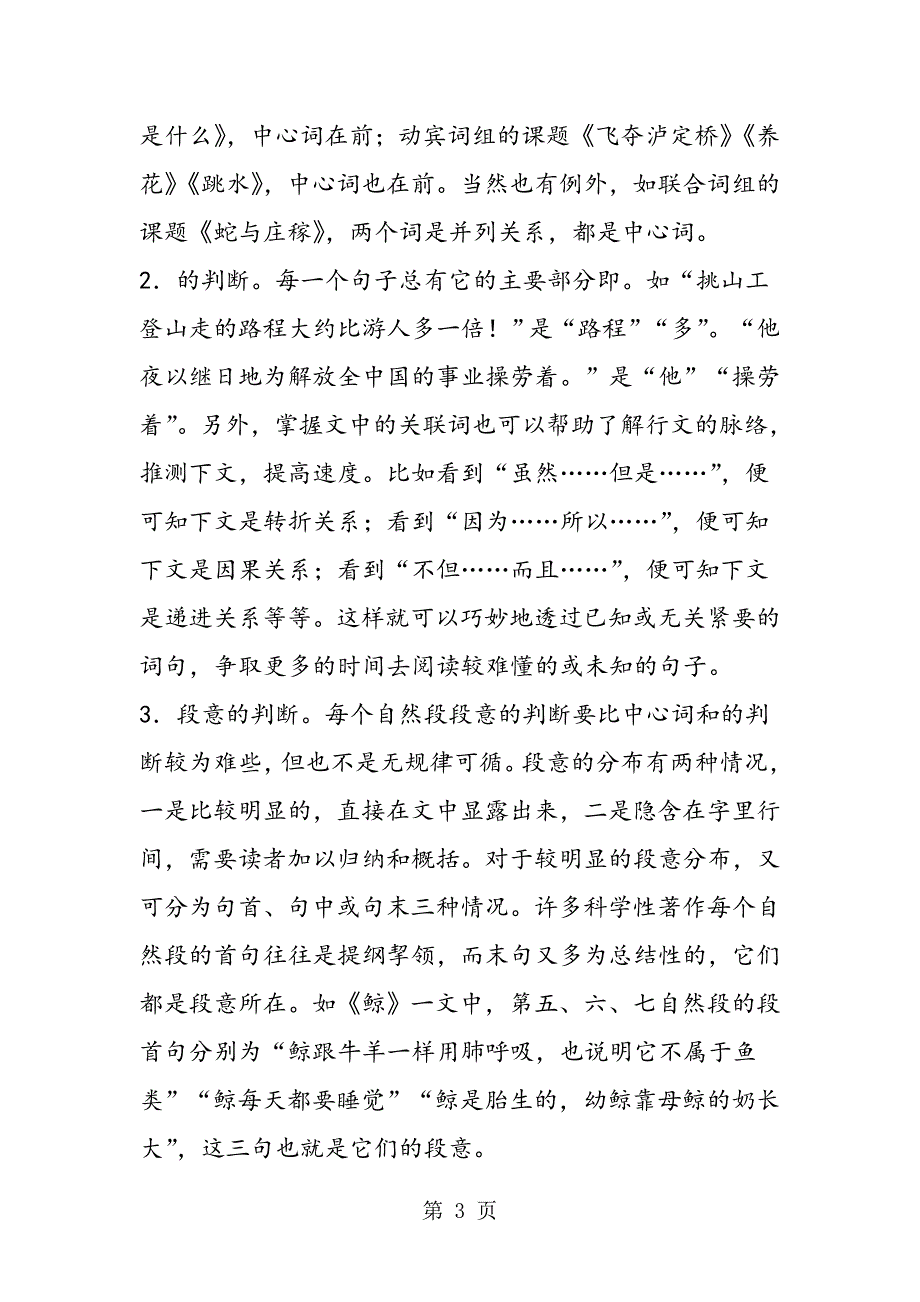 是什么》，中心词在前；动宾词组的课题《飞夺泸定桥》《养
花》《跳水》，中心词也在前。当然也有例外，如联合词组的
课题《蛇与庄稼》，两个词是并列关系，都是中心词。
2．的判断。每一个句子总有它的主要部分即。如“挑山工
登山走的路程大约比游人多一倍！”是“路程”“多”。“他
夜以继日地为解放全中国的事业操劳着。”是“他”“操劳
着”。另外，掌握文中的关联词也可以帮助了解行文的脉络，
推测下文，提高速度。比如看到“虽然……但是……”，便
可知下文是转折关系；看到“因为……所以……”，便可知
下文是因果关系；看到“不但……而且……”，便可知下文
是递进关系等等。这样就可以巧妙地透过已知或无关紧要的
词句，争取更多的时间去阅读较难懂的或未知的句子。
3．段意的判断。每个自然段段意的判断要比中心词和的判
断较为难些，但也不是无规律可循。段意的分布有两种情况，
一是比较明显的，直接在文中显露出来，二是隐含在字里行
间，需要读者加以归纳和概括。对于较明显的段意分布，又
可分为句首、句中或句末三种情况。许多科学性著作每个自
然段的首句往往是提纲挈领，而末句又多为总结性的，它们
都是段意所在。如《鲸》一文中，第五、六、七自然段的段
首句分别为“鲸跟牛羊一样用肺呼吸，也说明它不属于鱼
类”“鲸每天都要睡觉”“鲸是胎生的，幼鲸靠母鲸的奶长
大”，这三句也就是它们的段意。
第 3 页